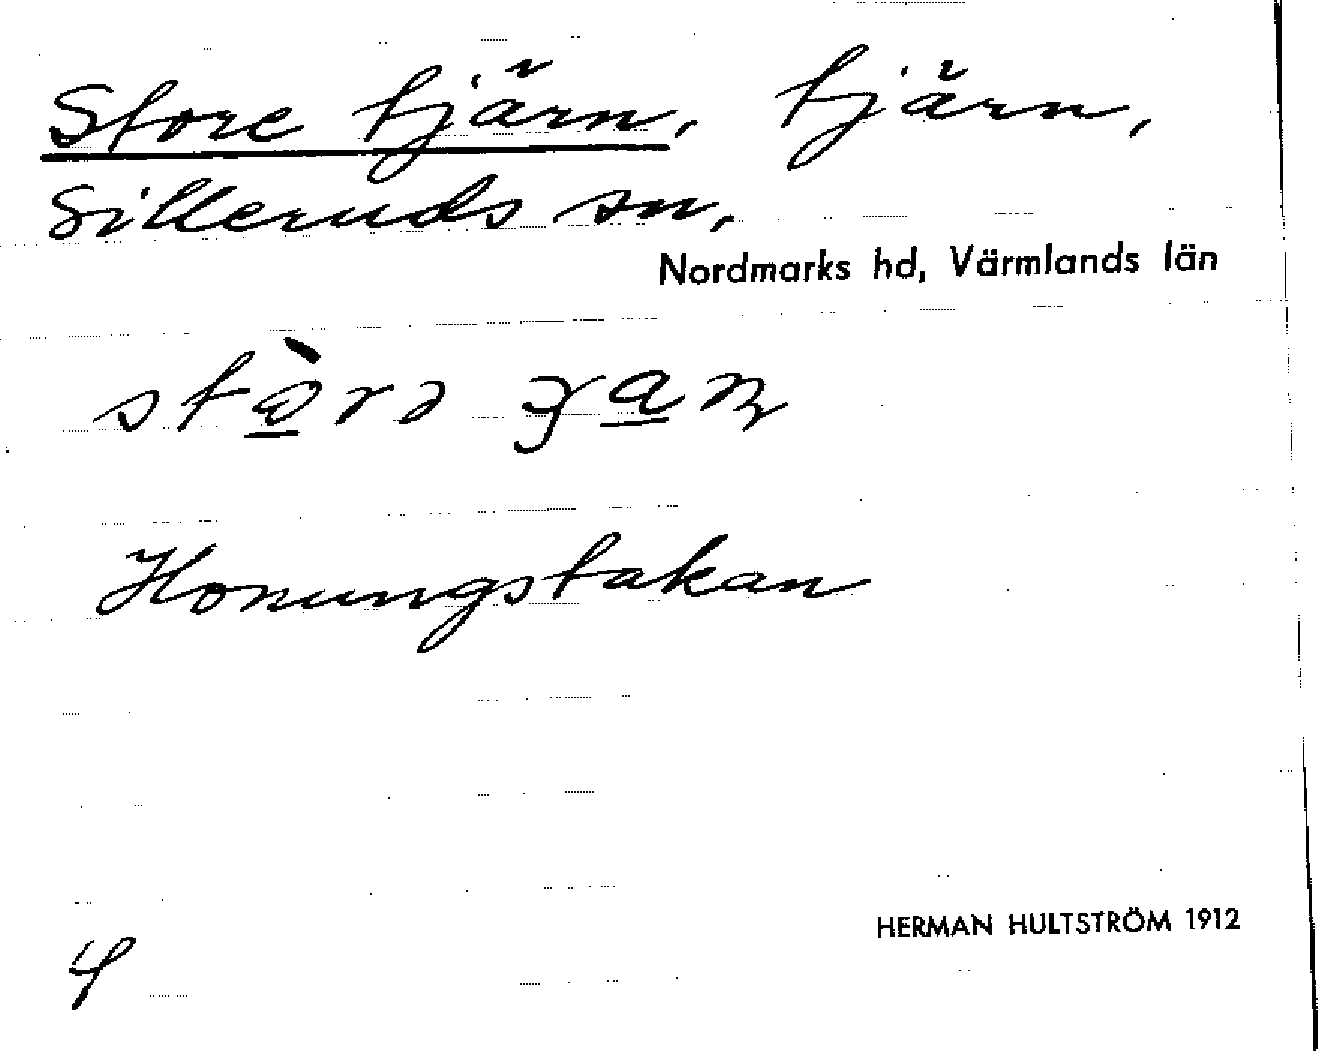 Store tjärn, tjärn,
Silleruds sn,
Nordmarks hd, Värmlands län
Honungstakan
HERMAN HULTSTRÖM 1912